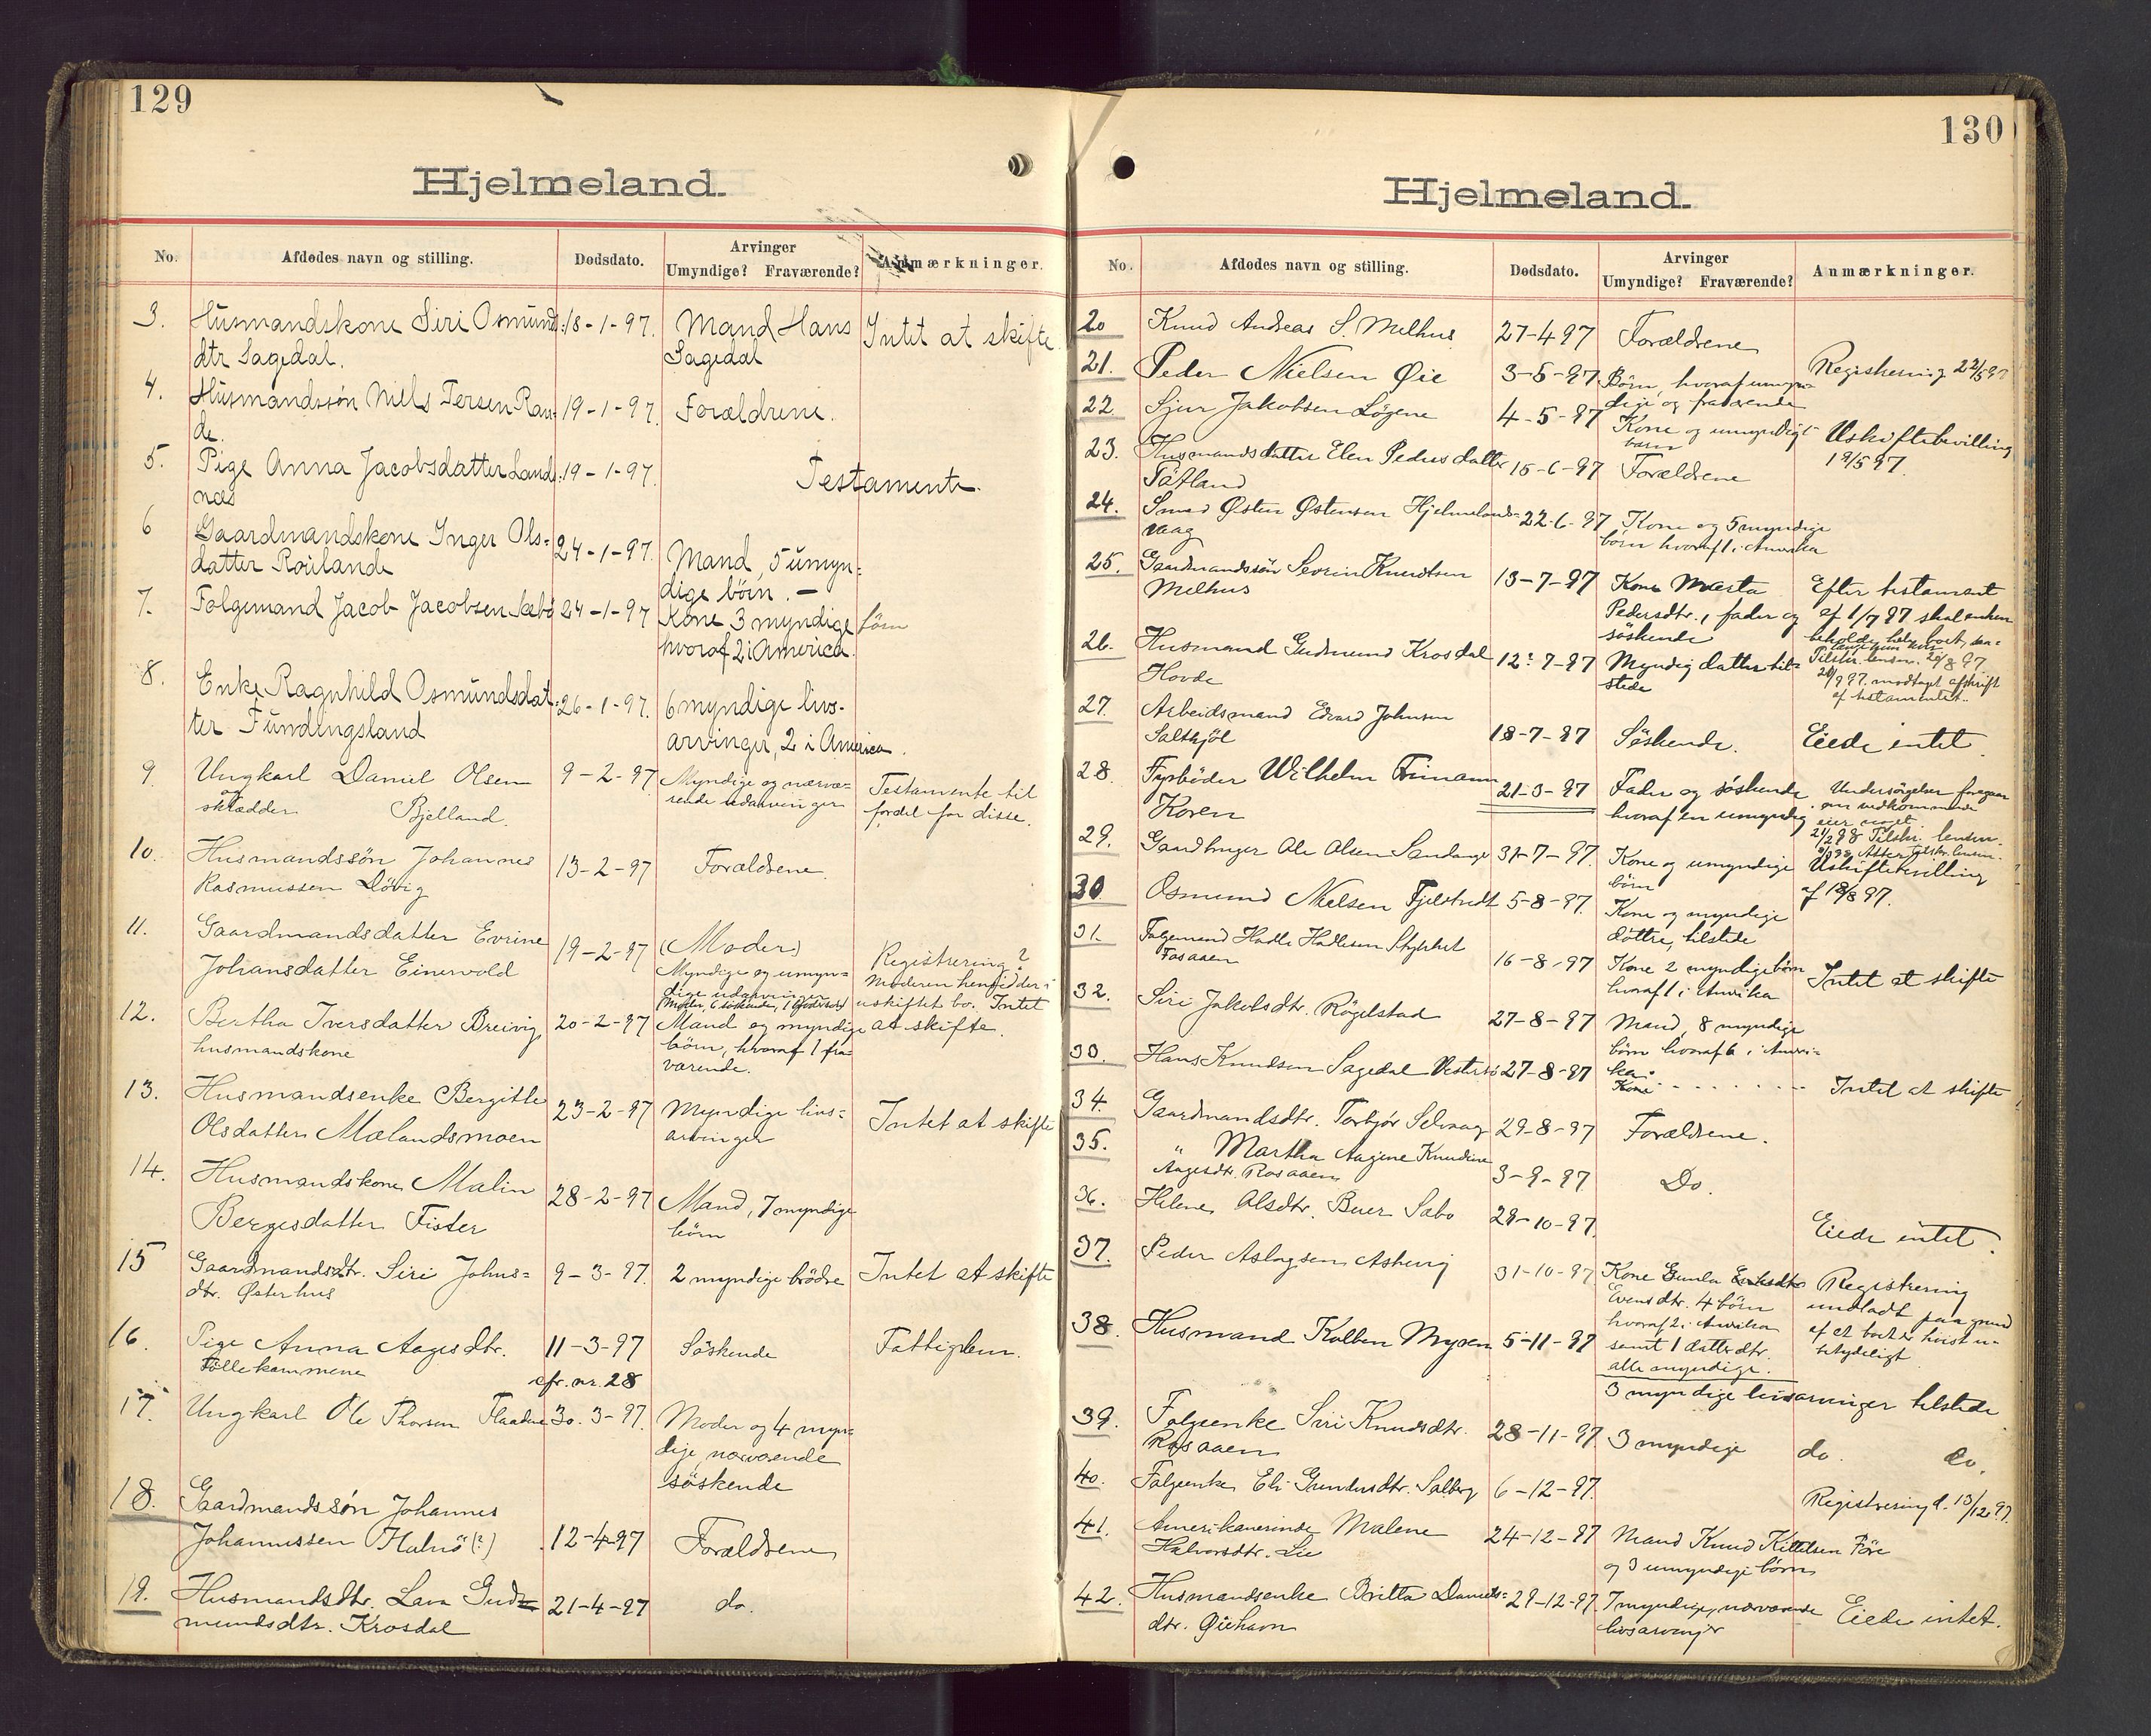 129
Hjelmeland.
No. Afdødes navn og stilling. Dødsdato. Arvinger Umyndige? Fraværende? Anmærkninger.
3. Husmandskone Siri Osmund: 18-1-97. Mand Hans Intet at skifte
dtr Sagedal. Sagedal
4. Husmandssøn Nills Tersen Rau- 19-1-97. Forældrene.
de.
5. Pige Anna Jacobsdatter Land: 19-1-97. Testamente.
næs
6 Gaardmandskone Inger Ols= 24-1-97. Mand, 5 umyn=
datter Roulande dige börn. -
7. Folgemand Jacob Jacobsen Sæbö 24-1-97 Kone 3 myndige börn
hvoraf 2 i America.
8. Enke Ragnhild Osmundsdat- 26-1-97. 6 myndige livs-
ter Fundingsland arvinger, 2 i America.
9. Ungkarl Daniel Olsen 9-2-97 Myndige og nærvæ= Testamente til
og skrædder Bjelland. rende udarvinger fordel for disse.
10. Husmandssön Johannes 13-2-97 Forældrene.
Rasmussen Dövig
11. Gaardmandsdatter Evrine 19-2-97 (Moder) Registrering?
Johansdatter Einervold Myndige og umyn= Moderen hensidder i
dige udarvinger uskiftet bo. Intet
(Moder, 6 söskende,
12. Bertha Iversdatter Breivig 20-2-97 Mand og myndige at skifte.
husmandskone börn, hvoraf 1 fra=
værende.
13. Husmandsenke Bergitte 23-2-97 Myndige livs= Intet at skifte
Olsdatter Mælandsmoen arvinger
14. Husmandskone Malin 28-2-97 Mand, 7 myndige
Bergesdatter Fister börn
15 Gaardmandsdtr. Siri Johns= 9-3-97. 2 myndige brödre Intet at skifte
dtr. Østerhus
16. Pige Anna Aagesdtr. 11-3-97 Söskende Fattiglem.
Töllekammene cfr. nr. 28
17. Ungkarl Ole Thorsen Flaatene 30.3-97. Moder og 4 myn=
dige, nærværende
söskende
18. Gaardmandssön Johannes
Johannessen Halnö (?) 12-4-97 Forældrene
19. Husmandsdtr. Lava Gud= 21-4-97 do.
mundsdtr. Krosdal
130
Hjelmeland.
No. Afdødes navn og stilling. Dødsdato. Arvinger Umyndige? Fraværende? Anmærkninger.
20 Knud Andreas S. Melhus 27-4-97 Forældrene
21. Peder Nielsen Øie 3-5-97 Börn, hvoraf umyn= Registrering 22/5 97
dige og fraværende
22 Sjur Jakobsen Lögene 4-5-97 Kone og umyndigt Uskiftebevilling
barn 19/5 97.
23. Husmandsdatter Elen Pedersdatter 15-6-97 Forældrene
Täfland
24. Smed Østen Østensen Hjelmelands= 22-6-97 Kone og 5 myndige
vaag börn hvoraf 1 i Amerika
25. Gaardmandssön Sevrin Knudtsen 13-7-97 Kone Marta Efter testament
Melhus Pedersdtr., fader og af 1/7 97 skal enken
söskende beholde hele boet, saa=
længe hun lever.
26. Husmand Gudmund Krosdal 12-7-97 Myndig datter til= Tilskr. lensm. 20/8 97
Hovde stede 20/9 97. modtaget afskrift
af testamentet.
27. Arbeidsmand Edvard Johnsen
Saltkjöl 18-7-97 Söskende. Eiede intet
28. Fyrböder Wilhelm Trimann 21-3-97 Fader og söskende Undersögelser foregaar
Koren hvoraf en umyndig om vedkommende
eier noget.
21/2 98 Tilskr. lensm.
Atter tilskr. lensm.
29. Gaardbruger Ole Olsen Sandanger 31-7-97. Kone og umyndige Uskiftebevilling
börn af 18/8 97.
30 Osmund Nielsen Fjelstvedt 5-8-97. Kone og myndige
döttre, tilstede
31. Folgemand Hadle Hadlesen Stykket
Fosaaen 16-8-97 Kone 2 myndige börn Intet at skifte
hvoraf 1 i Amerika
32. Siri Jakobsdtr. Rögelstad 27-8-97 Mand, 8 myndige
börn hvoraf 6 i Ameri=
ka.
33. Hans Knudsen Sagedal Vestersö 27-8-97 Kone - - - - - - Intet at skifte
34. Gaardmandsdtr. Torbjör Selvaag 29-8-97 Forældrene.
35. " Martha Aagene Knudine
Aagesdtr. Rosaaen 3-9-97 Do.
36. Helene Olsdtr. Buer Sæbø 29-10-97. Eiede intet.
37. Peder Aslagsen Asheug 31-10-97 Kone Gunla Registrering
Evensdtr. 4 börn undladt paa grund
hvoraf 2 i Amerika af at boet er höist u=
samt 1 datterdtr. betydeligt
alle myndige.
38. Husmand Kolben Myren 5-11-97
3 myndige livsarvinger tilstede
39. Folgeenke Siri Knudsdtr. 28-11-97 3 myndige do. do.
Rosaaen
40. Folgeenke Eli Gundersdtr. Salberg 6-12-97. Registrering d. 13/12 97.
41. Amerikanerinde Malene 24-12-97 Mand Knud Kittelsen Töre
Halvorsdtr. Lie og 3 umyndige börn
42. Husmandsenke Britta Daniels= 29-12-97 7 myndige, nærværende Eiede intet.
dtr. Øiehavn livsarvinger